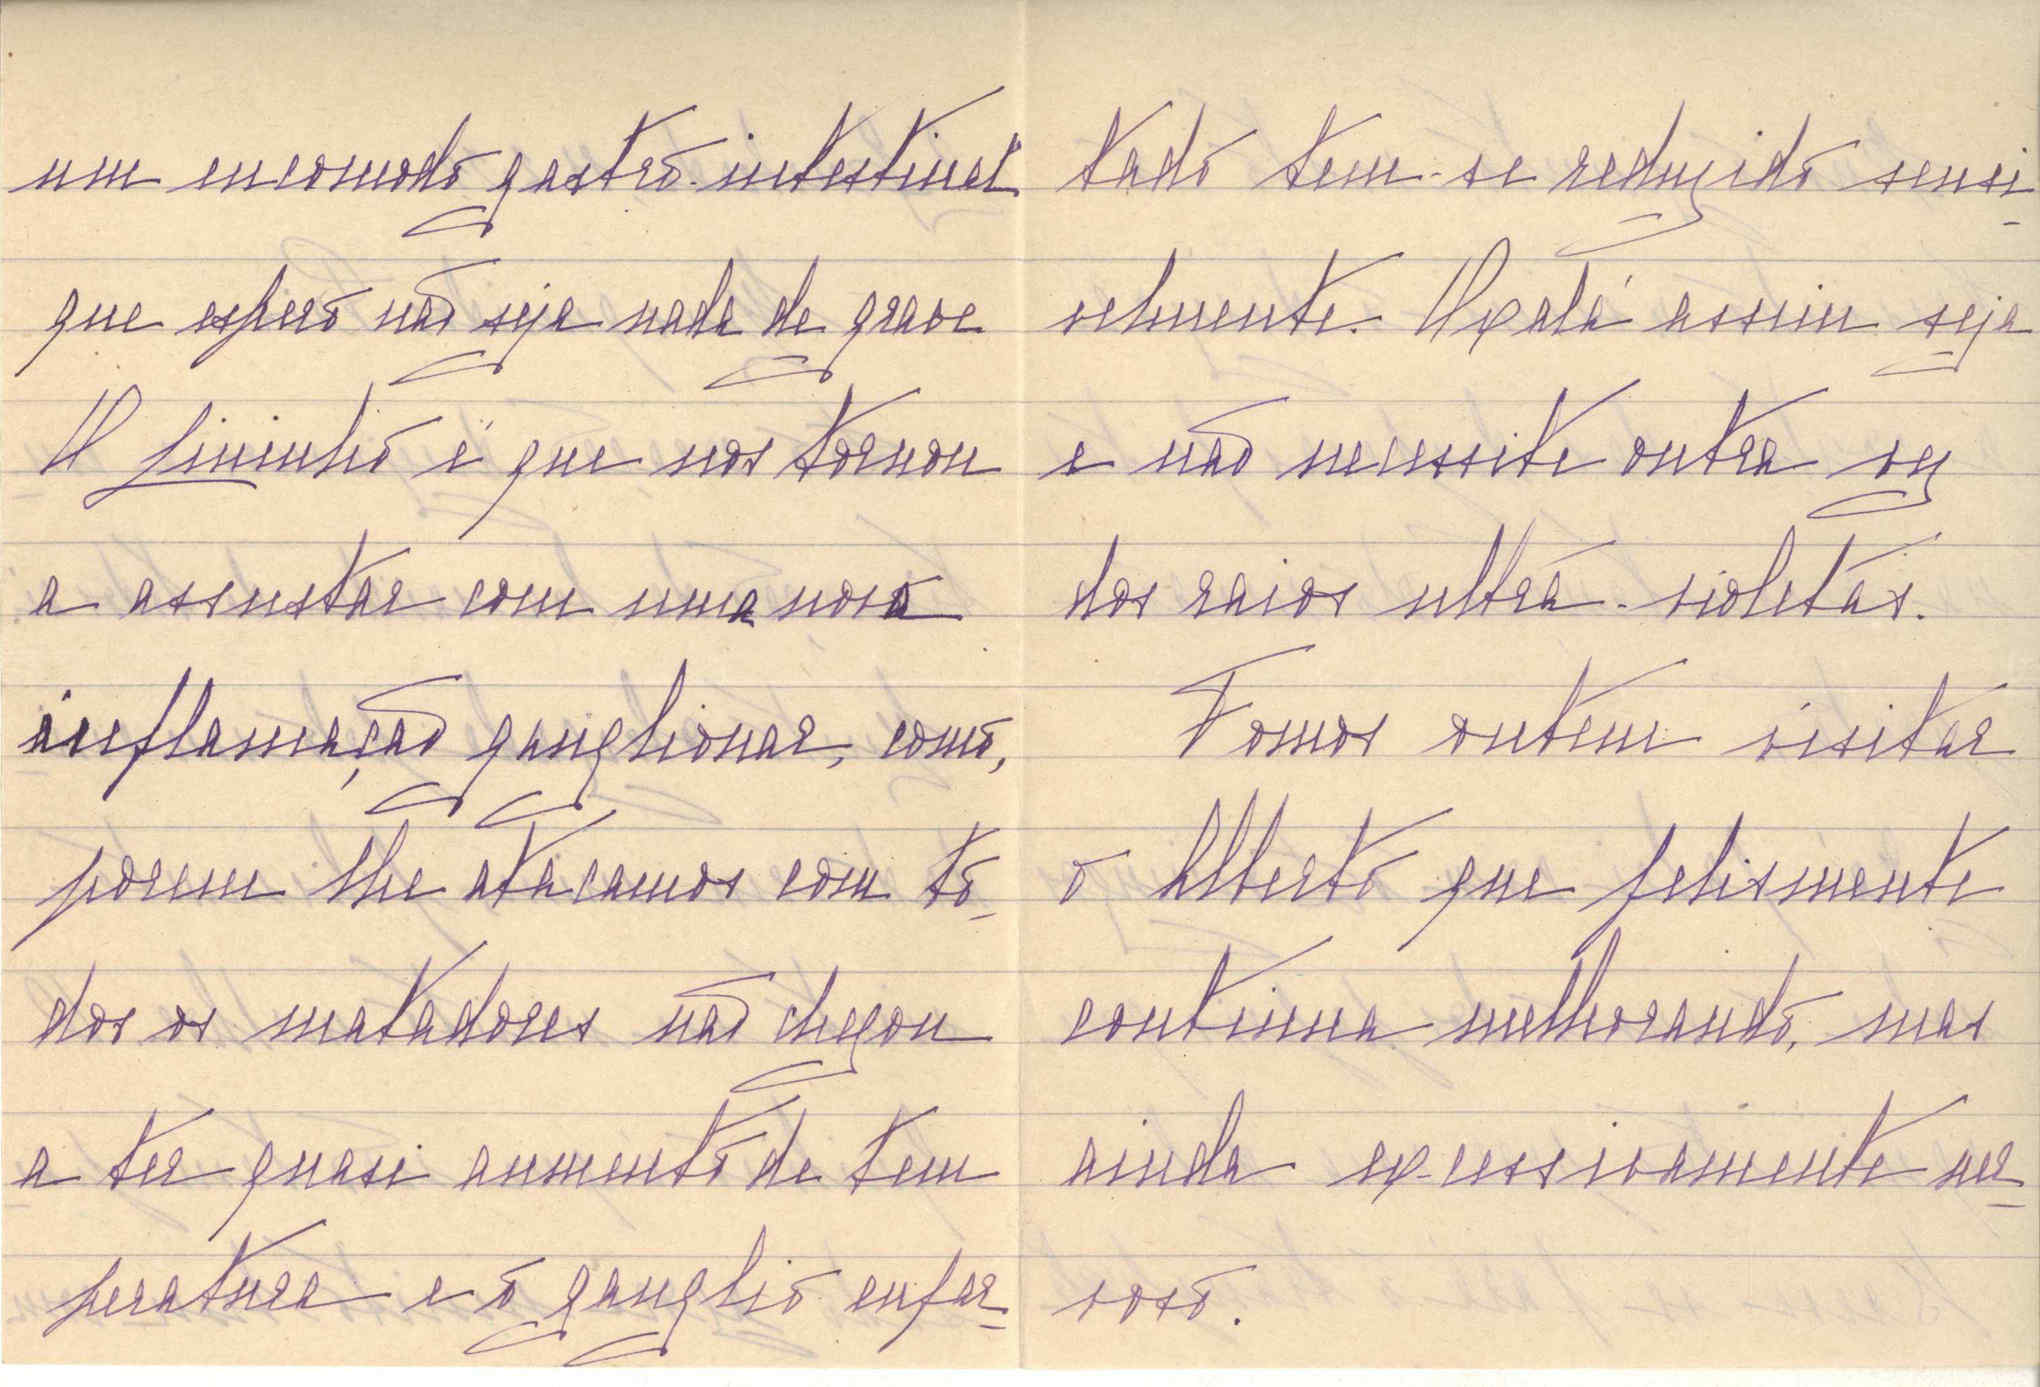 um encomodo gastro-intestinal
que espero não seja nada de grave
O Fininho é que nos tornou
a assustar com uma nova
inflamação ganglionar, como,
porem lhe atacamos com to-
dos os matadores não chegou
a ter quasi aumento de tem
peratura e o ganglio enfar-
tado tem-se reduzido sensi-
velmente. Oxalá assim seja
e não necessite outra vez
dos raios ultra-violetas.
Fomos ontem visitar
o Alberto que felismente
continua melhorando, mas
ainda excessivamente ner-
voso.